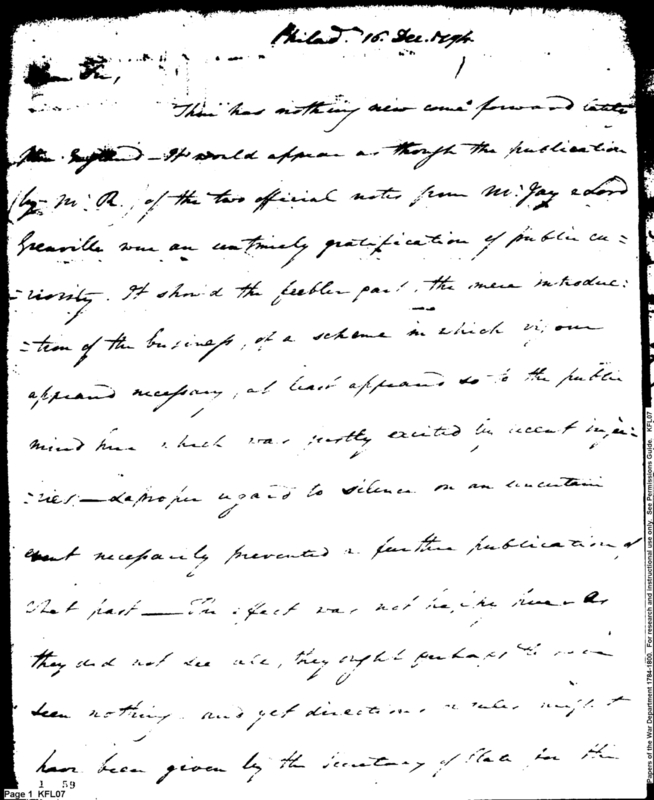 Philad.ᵃ 16. Dec. 1794
Dear Sir,
There has nothing new come forward
from England – It would appear as though the publication
(by Mr. R.) of the two official notes from Mr. Jay & Lord
Grenville was an untimely gratification of public cu=
=riosity. It shew'd the feebler part, the mere introduc=
=tion of the business, of a scheme in which vigour
appeared necessary, at least appeared so to the public
mind here which was justly excited by recent inju=
=ries – a proper regard to silence on an uncertain
event necessarily prevented a further publication of
what past — The effect was not happy here as
they did not see all, they ought perhaps to have
seen nothing. and yet directions & rules might
have been given by the Secretary of State for the
1 59
Page 1 KFL07
Papers of the War Department 1784-1800. For research and instructional use only. See Permissions Guide. KFL07